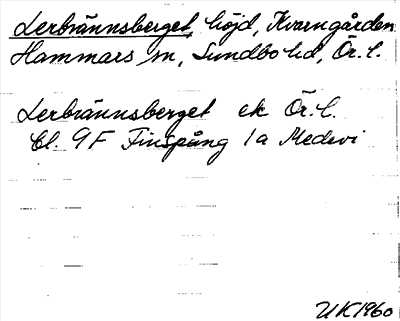 Lerbrännsberget, höjd, Kvarngården
Hammars sn, Sundbo hd, Ör. l.
Lerbrännsberget ek Ör. l.
Bl. 9F Finspång 1a Medevi
UK 1960